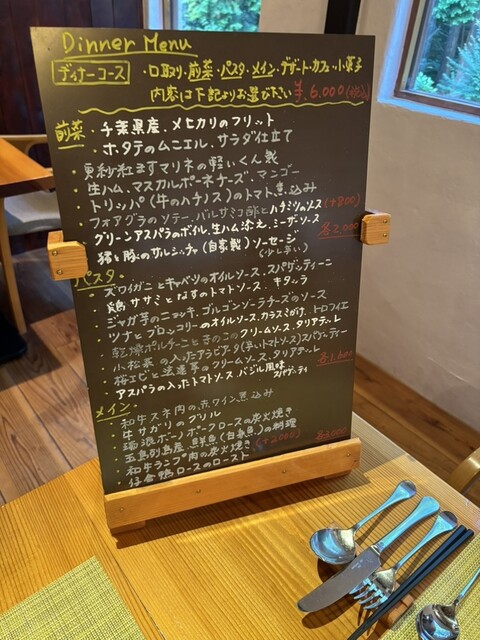 Dinner Menu
ディナーコース ・口取り・前菜・パスタ・メイン・デザート・カフェ・小菓子
内容は下記よりお選び下さい ¥6,000(税込)
前菜・千葉県産、メヒカリのフリット
・ホタテのムニエル、サラダ仕立て
・更紗紅ますマリネの軽いくん製
・生ハム、マスカルポーネチーズ、マンゴー
・トリッパ(牛のハチノス)のトマト煮込み
・フォアグラのソテー、バルサミコ酢とハチミツのソース(+800)
・グリーンアスパラのボイル、生ハム添え、ミーザソース 各2,000
・豚のサルシッチャ(自家製)ソーセージ
(少し辛い)
パスタ・
・ズワイガニとキャベツのオイルソース、スパゲッティーニ
・鶏ササミとなすのトマトソース、キタッラ
・ジャガ芋のニョッキ、ゴルゴンゾーラチーズのソース
・ツナとブロッコリーのオイルソース、カラスミがけ、トロフィエ
・乾燥ポルチーニときのこのクリームソース、タリアテッレ
・小松菜の入ったアラビアータ(辛いトマトソース)スパゲッティー
・桜エビと菠薐草のクリームソース、タリアテッレ
・アスパラの入ったトマトソース、バジル風味 スパゲッティ 各1,600
メイン・
・和牛スネ肉の赤ワイン煮込み
・牛サガリのグリル
・瑞浪ボーノポークロースの炭火焼き
・五島列島産 鮮魚(白身魚)の料理
・和牛ランプ肉の炭火焼き(+2000) 各3,000
・信金鴨ロースのロースト